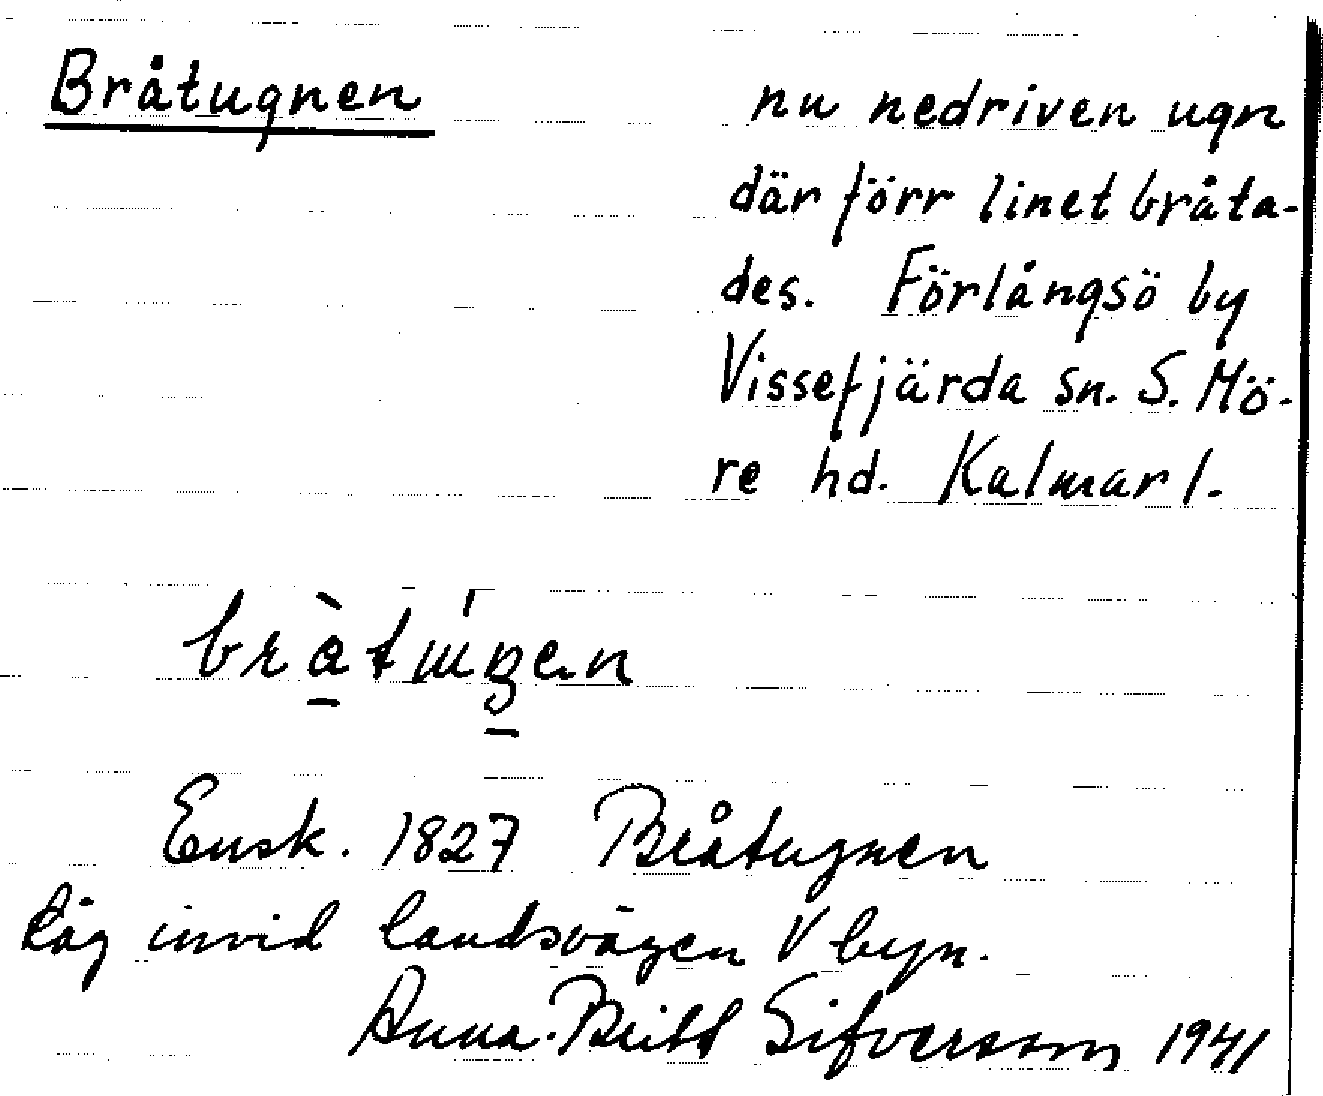 Bråtugnen
nu nedriven ugn
där förr linet bråta-
des. Förlångsö by
Vissefjärda sn. S. Mö-
re hd. Kalmar l.
Ensk. 1827 Bråtugnen
Låg invid landsvägen V byn.
Anna-Britt Sifversson 1941